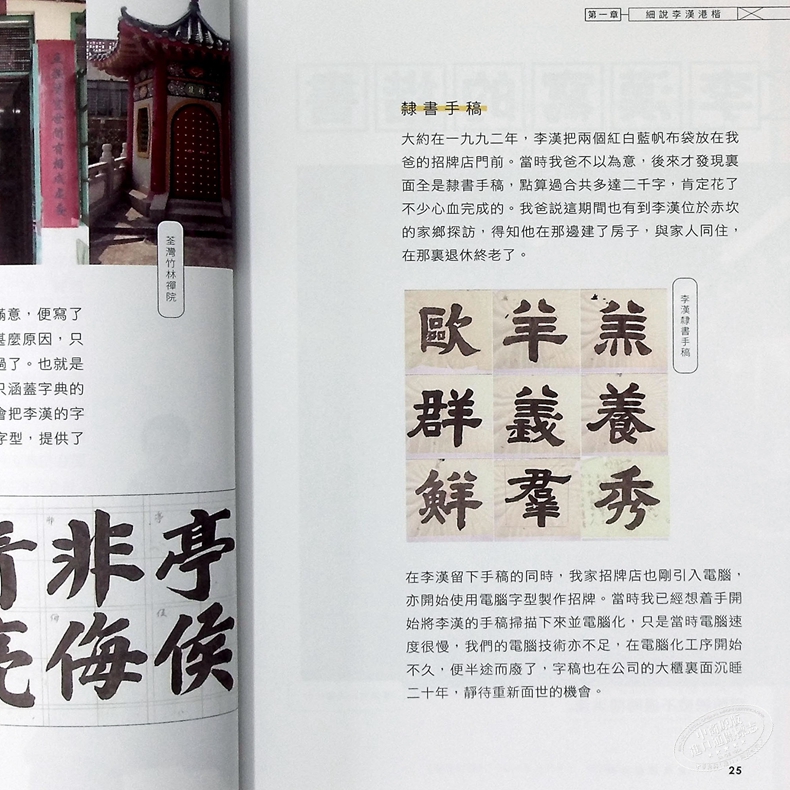 荃灣竹林禪院
滿意，便寫了
甚麼原因，只
過了。也就是
只涵蓋字典的
會把李漢的字
字型，提供了
非亭
侮候
第一章
細說李漢港楷
隸書手稿
大約在一九九二年，李漢把兩個紅白藍帆布袋放在我
爸的招牌店門前。當時我爸不以為意，後來才發現裏
面全是隸書手稿，點算過合共多達二千字，肯定花了
不少心血完成的。我爸説這期間也有到李漢位於赤坎
的家鄉探訪，得知他在那邊建了房子，與家人同住，
在那裏退休終老了。
歐羊羔
群義養
鮮羣秀
李漢隸書手稿
在李漢留下手稿的同時，我家招牌店也剛引入電腦，
亦開始使用電腦字型製作招牌。當時我已經想着手開
始將李漢的手稿掃描下來並電腦化，只是當時電腦速
度很慢，我們的電腦技術亦不足，在電腦化工序開始
不久，便半途而廢了，字稿也在公司的大櫃裏面沉睡
二十年，靜待重新面世的機會。
25